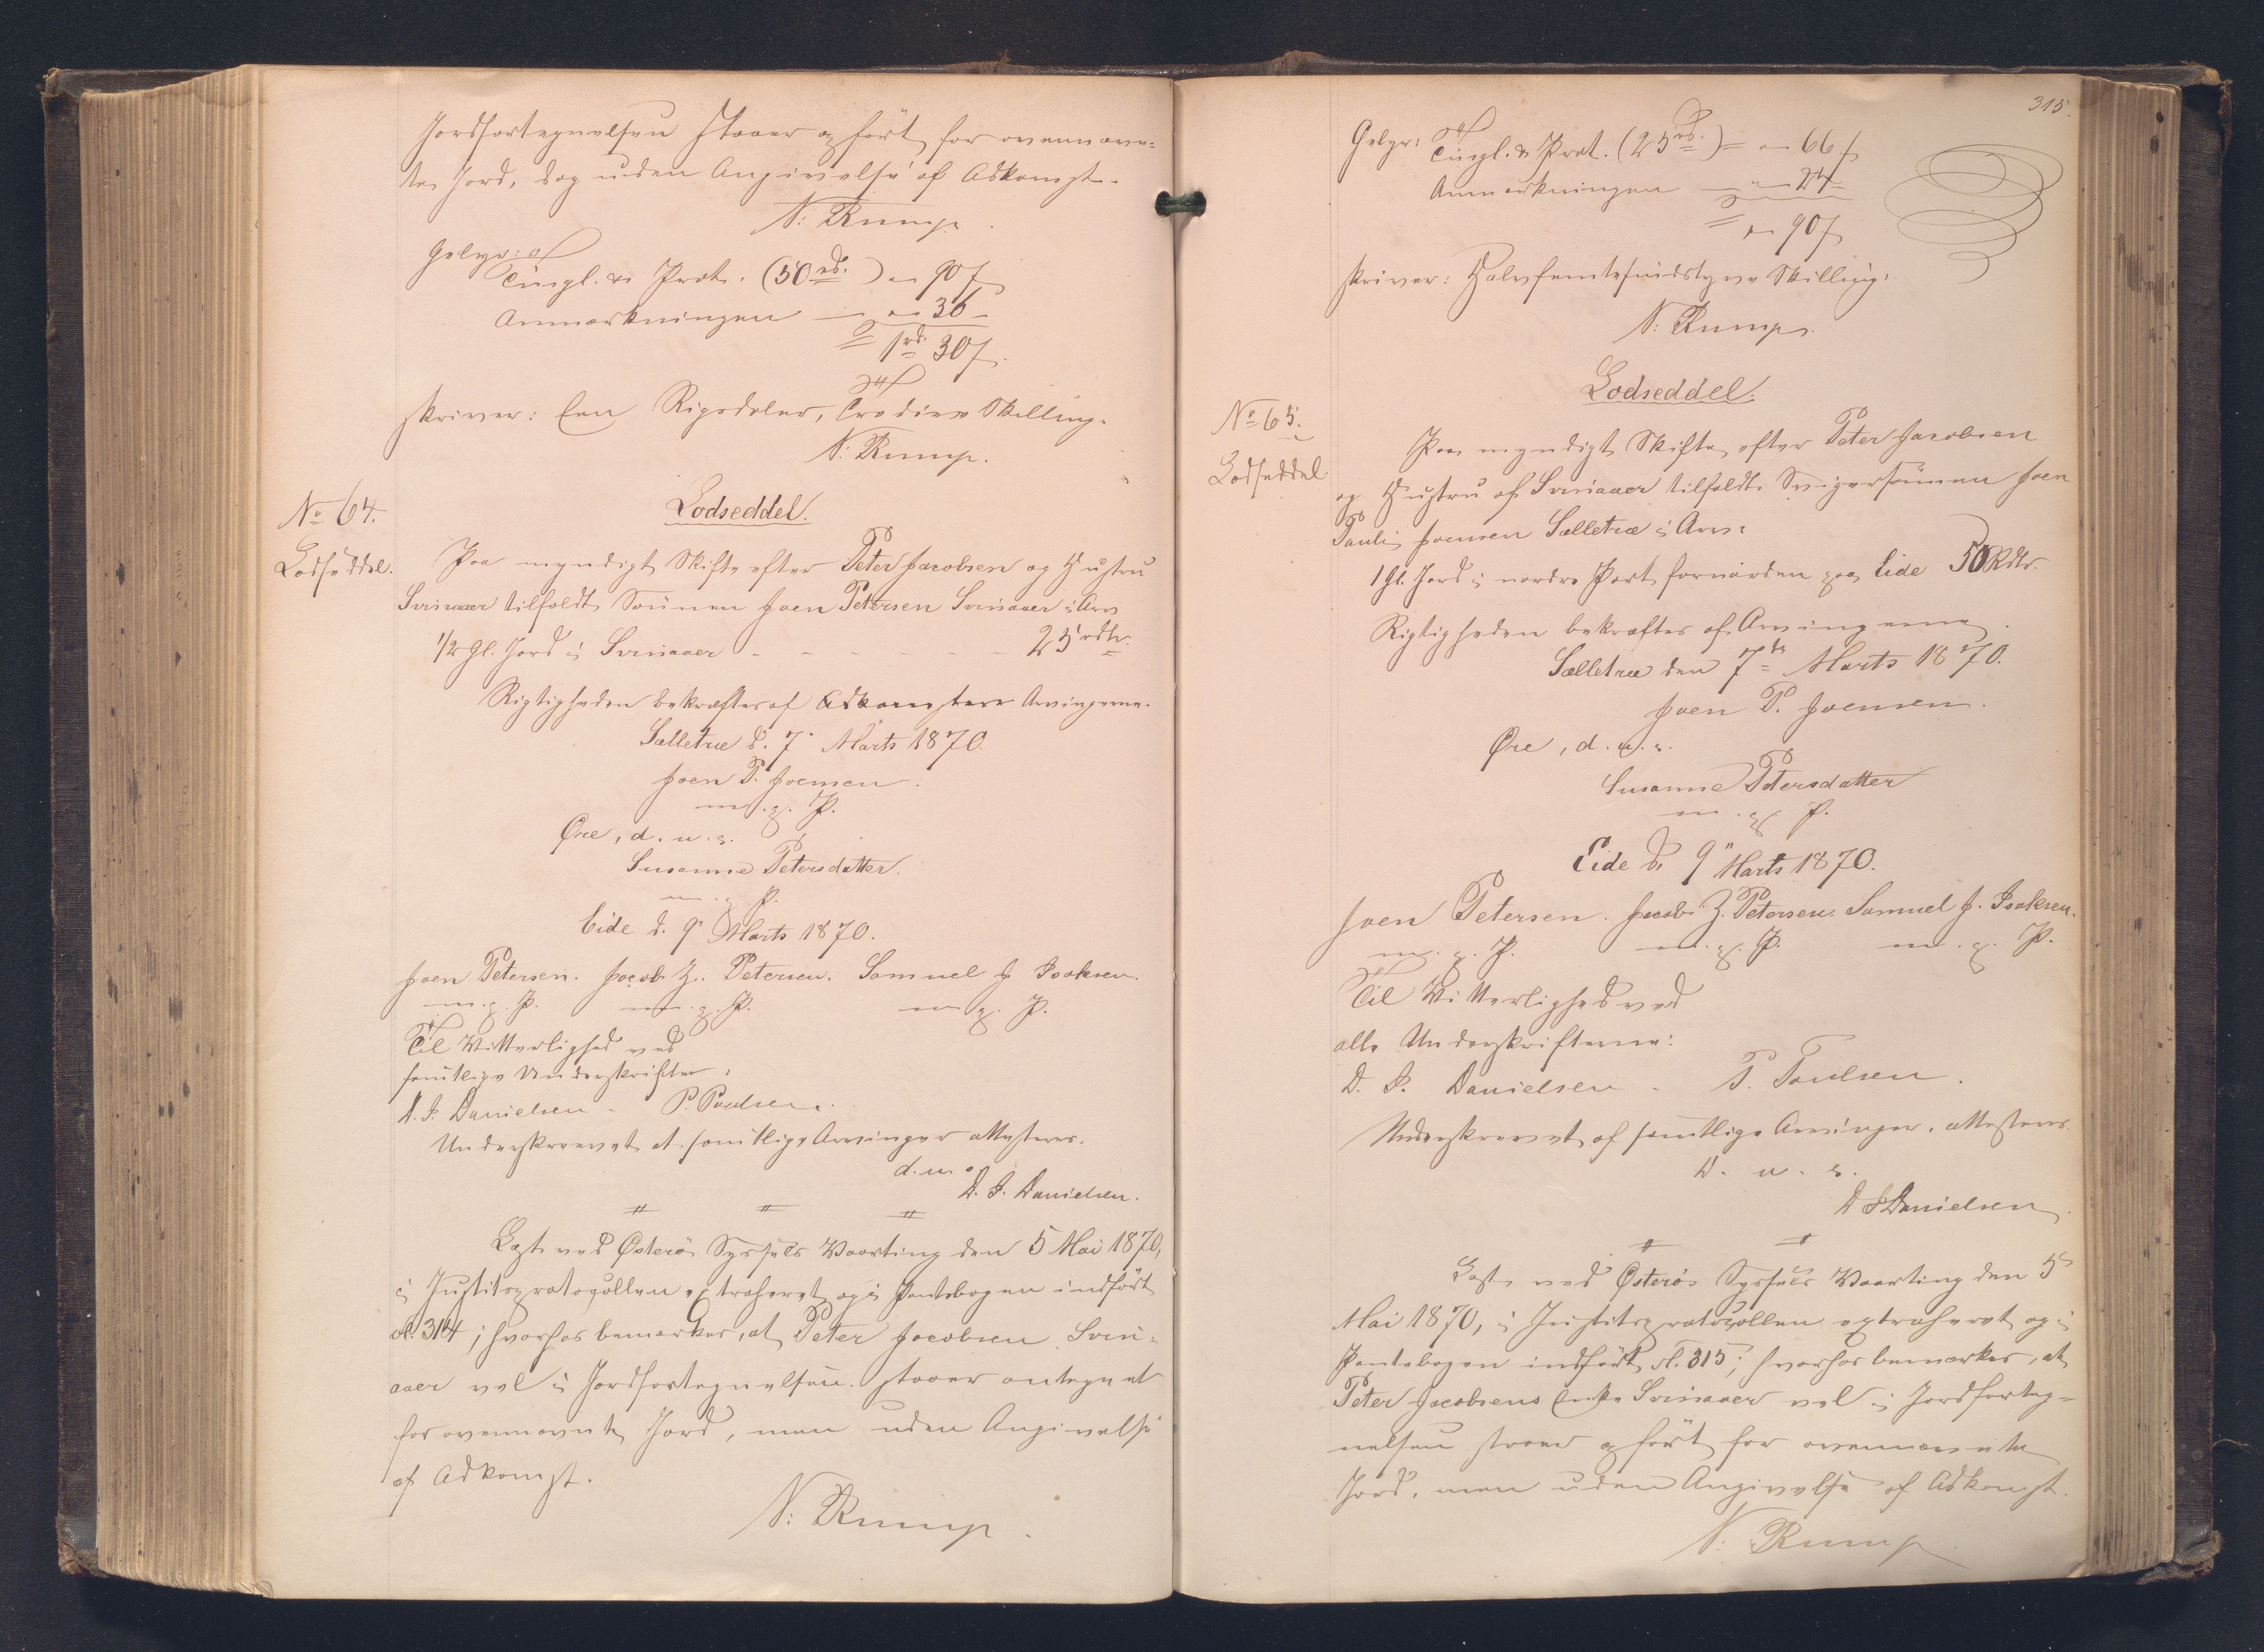 Jordfortegnelsen staaer opført for ovennævn-
te Jord, dog uden Angivelse af Adkomst.
N: Rump.
Gebyr: af
Tingl. & Prot. (50 rd.) „ 90 ſ
Anmærkningen — „ 36 -
= 1 rd. 30 ſ.
skriver: Een Rigsdaler, Tredive Skilling.
N: Rump.
No 64.
Lodseddel.
Lodseddel.
Paa myndigt Skifte efter Peter Jacobsen og Hustru
Svinaaer tilfaldt Sønnen Joen Petersen Svinaaer i Arv
1/2 Gl. Jord i Svinaaer - - - - - - 25 rdlr.
Rigtigheden bekræftes af Arvingerne.
Selletræ d. 7 Marts 1870.
Joen P. Joensen.
m. p. P.
Øre, d. u. s.
Susanne Petersdatter.
m. p. P.
Eide d. 9 Marts 1870.
Joen Petersen. Jacob Z. Petersen. Samuel J. Isaksen.
m. p. P. m. p. P. m. p. P.
Til Vitterlighed ved
samtlige Underskrifter:
D. J. Danielsen. P. Poulsen.
Underskrevet af samtlige Arvinger attesteres.
d. u. s.
D. J. Danielsen.
Læst ved Østerø Syssels Vaarting den 5 Mai 1870,
i Justitsprotocollen extraheret og i Pantebogen indført
fol. 314; hvorhos bemærkes, at Peter Jacobsen Svin-
aaer vel i Jordfortegnelsen staaer antegnet
for ovennævnte Jord, men uden Angivelse
af Adkomst.
N: Rump.
315.
Gebyr: af
Tingl. & Prot. (25 rd.) = „ 66 ſ
Anmærkningen — „ 24 -
= „ 90 ſ
skriver: Halvfemtesindstyve Skilling.
N: Rump.
No 65.
Lodseddel.
Lodseddel.
Paa myndigt Skifte efter Peter Jacobsen
og Hustru af Svinaaer tilfaldt Svigersønnen Joen
Pauli Joensen Selletræ i Arv:
1 Gl. Jord i nordre Part fornorden paa Eide 50 Rdlr.
Rigtigheden bekræftes af Arvingerne.
Selletræ den 7de Marts 1870.
Joen P. Joensen.
Øre, d. u. s.
Susanne Petersdatter
m. p. P.
Eide d. 9 Marts 1870.
Joen Petersen. Jacob Z. Petersen. Samuel J. Isaksen.
m. p. P. m. p. P. m. p. P.
Til Vitterlighed ved
alle Underskrifterne:
D. J. Danielsen. P. Poulsen.
Underskrevet af samtlige Arvinger, attesteres.
D. u. s.
D J Danielsen.
Læst ved Østerø Syssels Vaarting den 5
Mai 1870, i Justitsprotocollen extraheret og i
Pantebogen indført fol. 315; hvorhos bemærkes, at
Peter Jacobsens Enke Svinaaer vel i Jordforteg-
nelsen staaer opført for ovennævnte
Jord, men uden Angivelse af Adkomst.
N: Rump